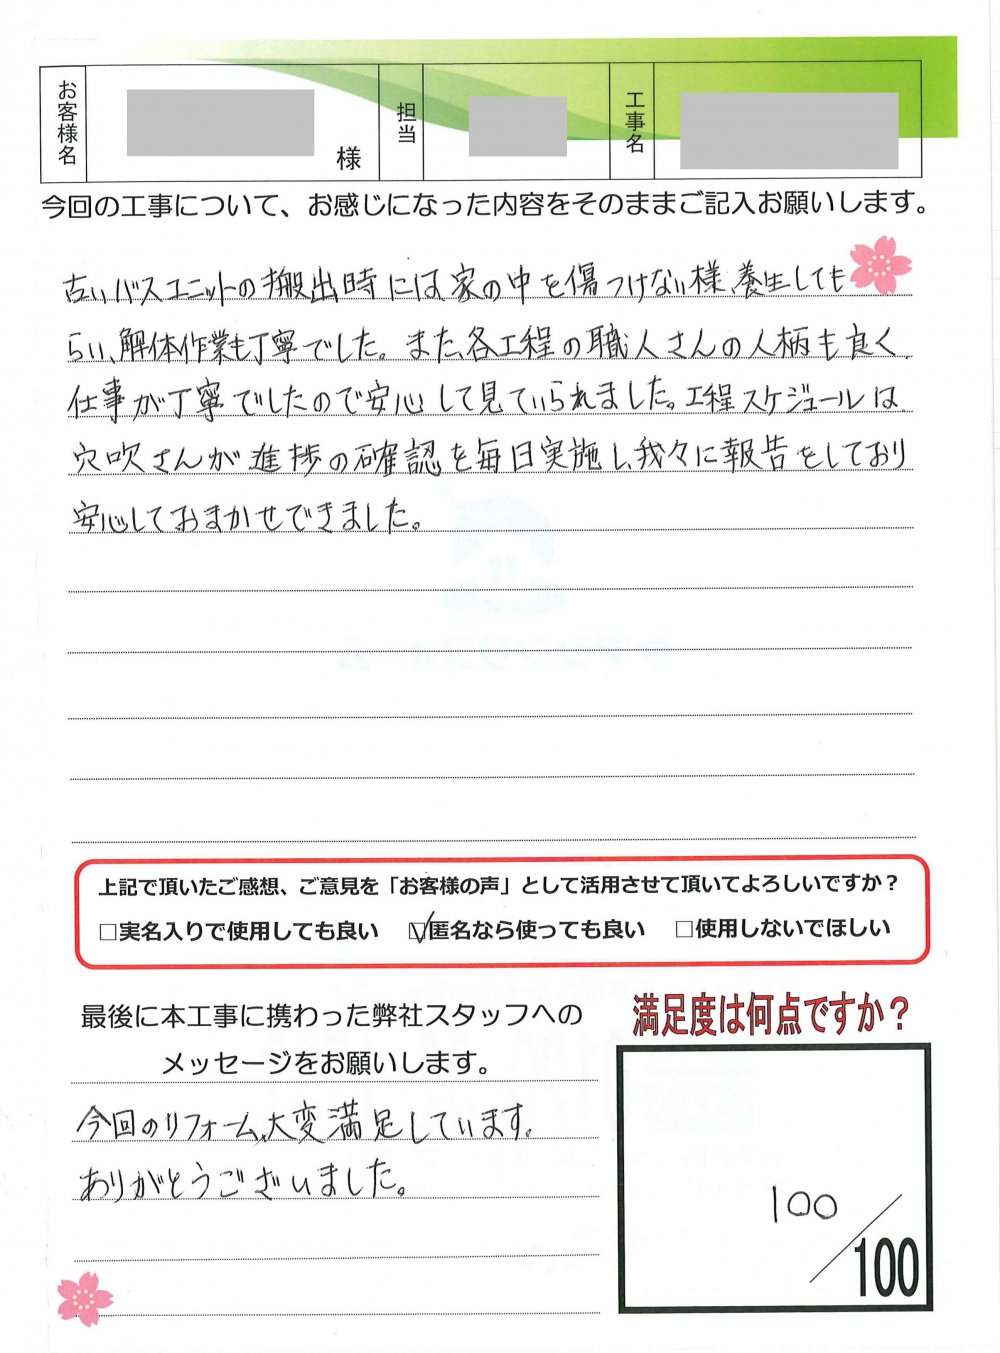 お客様名
様
担当
工事名
今回の工事について、お感じになった内容をそのままご記入お願いします。
古いバスユニットの搬出時には、家の中を傷つけない様、養生しても
らい、解体作業も丁寧でした。また、各工程の職人さんの人柄も良く
仕事が丁寧でしたので安心して見ていられました。工程スケジュールは
穴吹さんが進捗の確認を毎日実施し、我々に報告をしており
安心しておまかせできました。
上記で頂いたご感想、ご意見を「お客様の声」として活用させて頂いてよろしいですか？
□実名入りで使用しても良い ☑匿名なら使っても良い □使用しないでほしい
最後に本工事に携わった弊社スタッフへの
メッセージをお願いします。
今回のリフォーム、大変満足しています。
ありがとうございました。
満足度は何点ですか？
100
/100